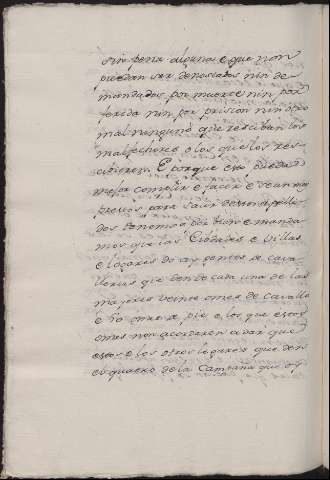 sin pena alguna e que non
puedan ser denostados nin de
mandados por muerte nin por
ferida nin por prision nin otro
mal ninguno que resciban los
malfechores o los que los res
cibieren. E porque esto pueda
mejor complir e facer e sean mas
prestos para salir destos apelli
dos tenemos por bien e manda
mos que las Cibdades e Villas
e logares do ay gentes de cava
lleros que den de cada una de las
mayores veinte omes de cavallo
e omes de pie e los que estos
omes non acordaren a dar que
estos e los otros logares que den
el quarto de la Campaña que oy